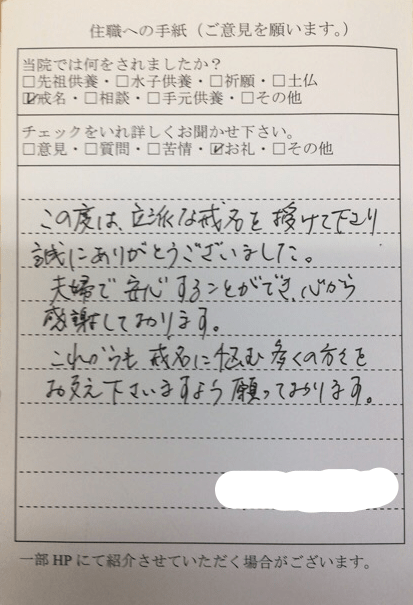 住職への手紙（ご意見を願います。）
当院では何をされましたか？
□先祖供養・□水子供養・□祈願・□土仏
☑戒名・□相談・□手元供養・□その他
チェックをいれ詳しくお聞かせ下さい。
□意見・□質問・□苦情・☑お礼・□その他
この度は、立派な戒名を授けて下さり
誠にありがとうございました。
夫婦で安心することができ、心から
感謝しております。
これからも戒名に悩む多くの方々を
お支え下さいますよう願っております。
一部HPにて紹介させていただく場合がございます。